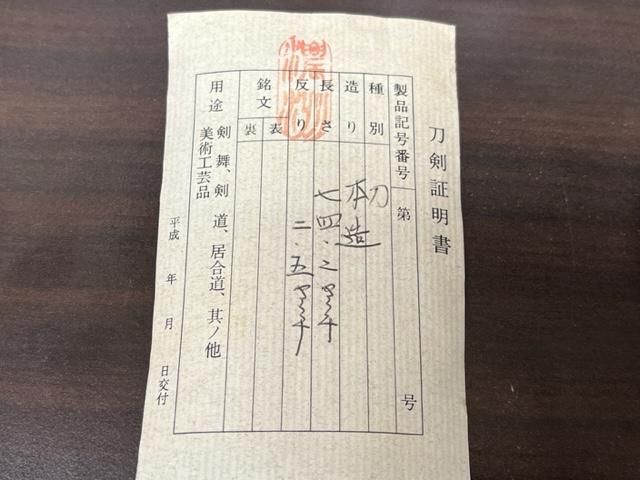 刀剣証明書
製品記号番号 第 号
種別 刀
造り 本造
長さ 七四・二センチ
反り 二・五センチ
銘文 表
裏
用途 剣舞、剣道、居合道、其ノ他
美術工芸品
平成 年 月 日交付